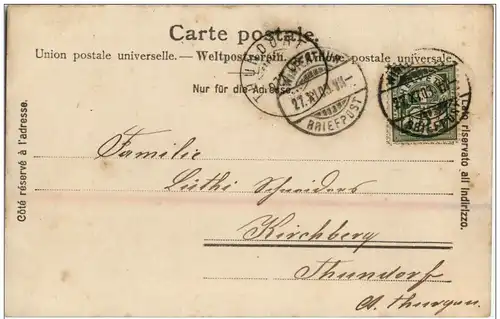 Carte postale.
Union postale universelle. — Weltpostverein. — postale universale
Nur für die Adresse.
THUNDORF
27.XI.05. VII—
BRIEFPOST
27.XI.05. VII
BRIEFPOST
Côté réservé à l'adresse.
Lato riservato all'indirizzo.
Familie
Lüthi Schneiders
Kirchberg
Thundorf
Ct. Thurgau.